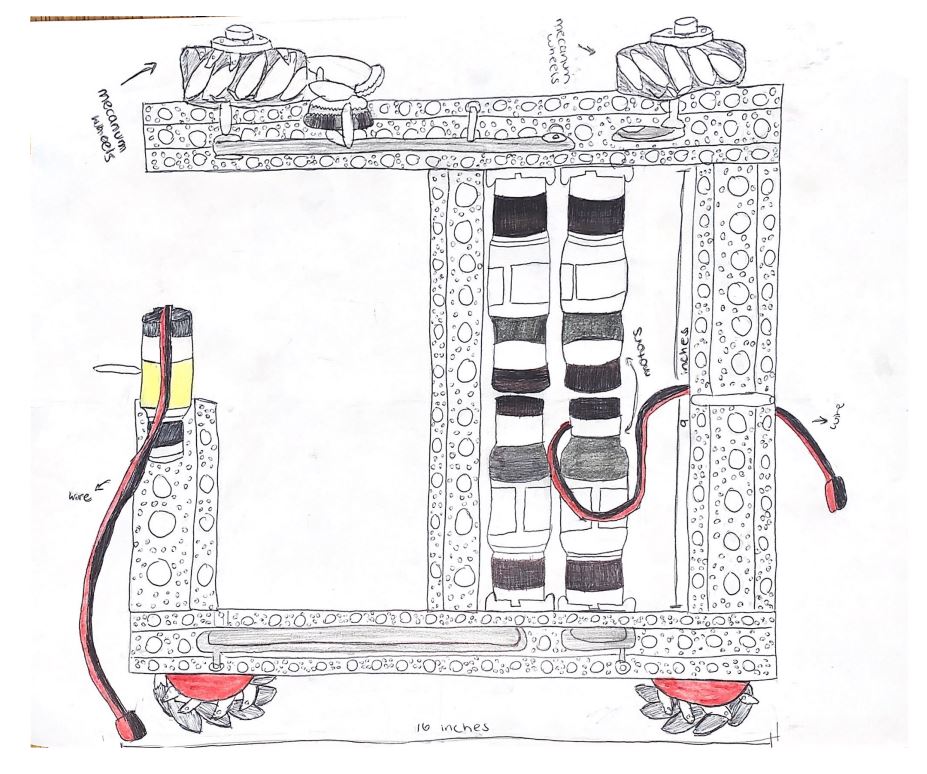 mecanum
wheels
mecanum
wheels
motors
9 inches
wire
wire
16 inches